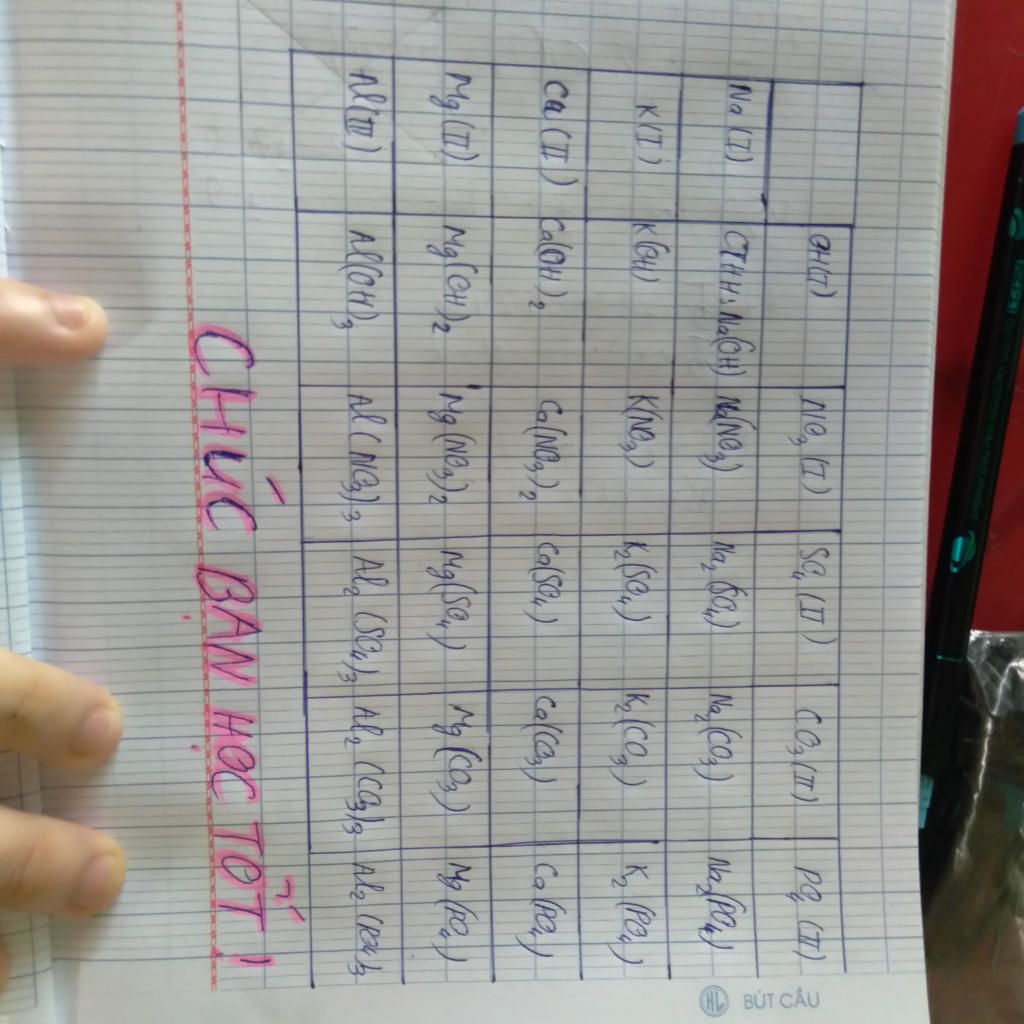 OH(I) NO₃(I) SO₄(II) CO₃(II) PO₄(II)
Na(I) CTHH: Na(OH) Na(NO₃) Na₂(SO₄) Na₂(CO₃) Na₂(PO₄)
K(I) K(OH) K(NO₃) K₂(SO₄) K₂(CO₃) K₂(PO₄)
Ca(II) Ca(OH)₂ Ca(NO₃)₂ Ca(SO₄) Ca(CO₃) Ca(PO₄)
Mg(II) Mg(OH)₂ Mg(NO₃)₂ Mg(SO₄) Mg(CO₃) Mg(PO₄)
Al(III) Al(OH)₃ Al(NO₃)₃ Al₂(SO₄)₃ Al₂(CO₃)₃ Al₂(PO₄)₃
CHÚC BẠN HỌC TỐT!
BÚT CẦU